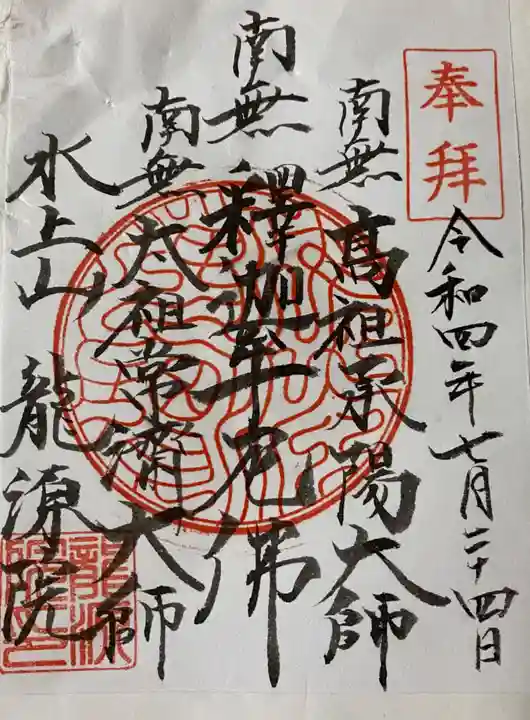 奉拜
令和四年七月二十四日
南無高祖承陽大師
南無釋迦牟尼佛
南無太祖常濟大師
水上山龍源院